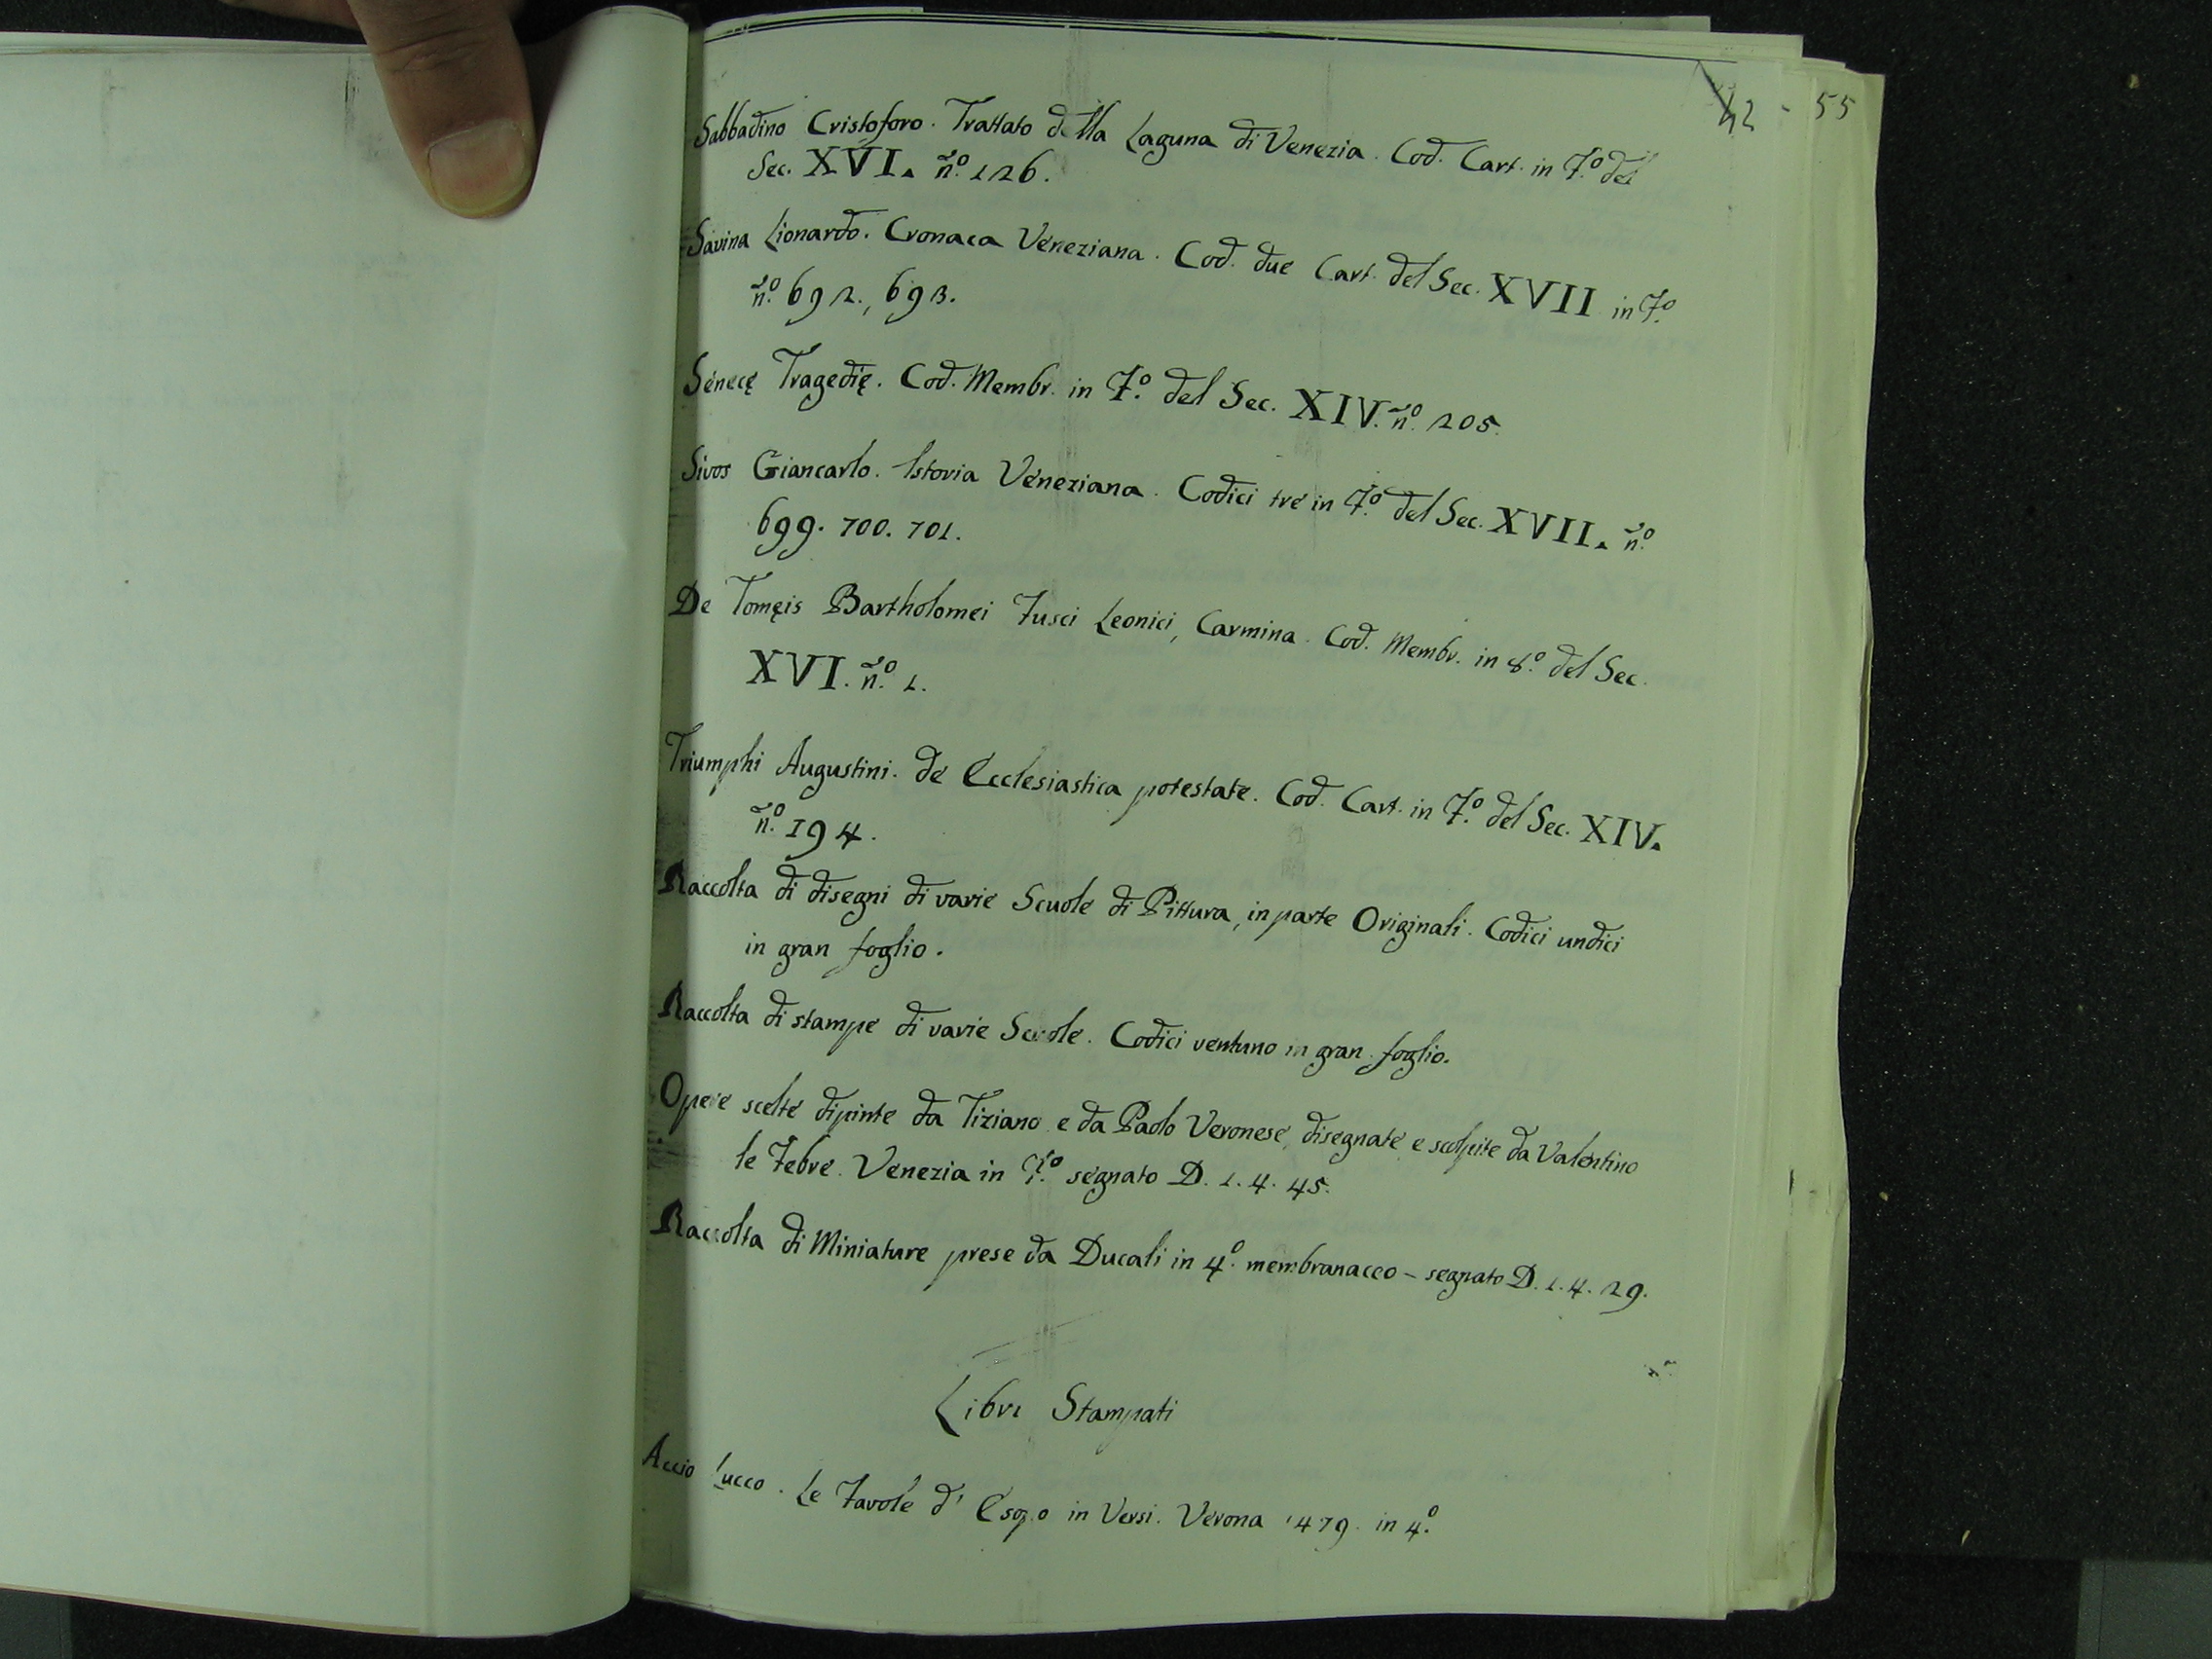 42 - 55
Sabbadino Cristoforo. Trattato della Laguna di Venezia. Cod. Cart. in F.º del
Sec. XVI. n.º 126.
Savina Lionardo. Cronaca Veneziana. Cod. due Cart. del Sec. XVII in F.º
n.º 692., 693.
Senecę Tragedię. Cod. Membr. in F.º del Sec. XIV. n.º 205.
Sivos Giancarlo. Istoria Veneziana. Codici tre in F.º del Sec. XVII. n.º
699. 700. 701.
De Tomęis Bartholomei Fusci Leonici, Carmina. Cod. Membr. in 8.º del Sec.
XVI. n.º 1.
Triumphi Augustini. de Ecclesiastica potestate. Cod. Cart. in F.º del Sec. XIV.
n.º 194.
Raccolta di disegni di varie Scuole di Pittura, in parte Originali. Codici undici
in gran foglio.
Raccolta di stampe di varie Scuole. Codici ventuno in gran foglio.
Opere scelte dipinte da Tiziano e da Paolo Veronese, disegnate e scolpite da Valentino
le Febre. Venezia in F.º segnato D. 1. 4. 45.
Raccolta di Miniature prese da Ducali in 4.º membranaceo – segnato D. 1. 4. 29.
Libri Stampati
Accio Zucco. Le Favole d' Esopo in Versi. Verona 1479. in 4.º